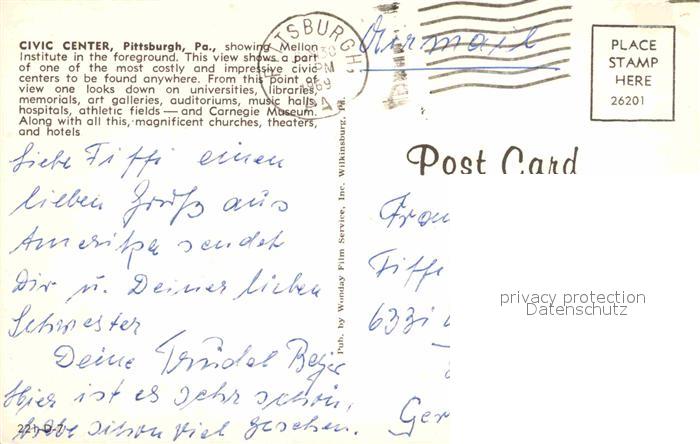 CIVIC CENTER, Pittsburgh, Pa., showing Mellon
Institute in the foreground. This view shows a part
of one of the most costly and impressive civic
centers to be found anywhere. From this point of
view one looks down on universities, libraries,
memorials, art galleries, auditoriums, music halls,
hospitals, athletic fields — and Carnegie Museum.
Along with all this, magnificent churches, theaters,
and hotels
PITTSBURGH,
30
PM
1969
PA
Airmail
PLACE
STAMP
HERE
26201
Post Card
Liebe Fiffi einen
lieben Gruß aus
Amerika sendet
Dir u. Deiner lieben
Schwester
Deine Trudel
Hier ist es sehr schön,
Habe schon viel gesehen.
221-D-7
Pub. by Wonday Film Service, Inc. Wilkinsburg, Pa.
Frau
Fiffi
6331
Ger
privacy protection
Datenschutz